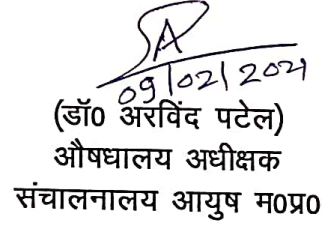 09/02/2021
(डॉ0 अरविंद पटेल)
औषधालय अधीक्षक
संचालनालय आयुष म0प्र0